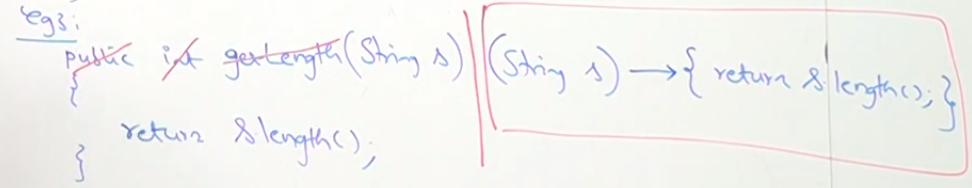 eg3:
public int getLength(String s)
{
return s.length();
}
(String s) → { return s.length(); }